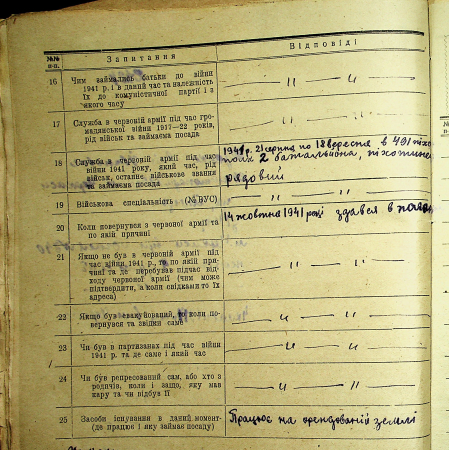 №№ п-п. Запитання Відповіді
16 Чим займались батьки до війни
1941 р. і в даний час та належність
їх до комуністичної партії і з
якого часу
— " — " —
17 Служба в червоній армії під час гро-
мадянської війни 1917—22 років,
рід військ та займаєма посада
— " — " —
18 Служба в червоній армії під час
війни 1941 року, який час, рід
військ, останнє військове звання
та займаєма посада
1941 р. 21 серпня по 18 вересня в 491 піхо
полк 2 батальйона, піхотинец
рядовий
19 Військова спеціальність (№ ВУС)
— " — " —
20 Коли повернувся з червоної армії та
по якій причині
14 жовтня 1941 році здався в полон
21 Якщо не був в червоній армії під
час війни 1941 р., то по якій при-
чині та де перебував підчас від-
ходу червоної армії (чим може
підтвердити, а коли свідками то їх
адреса)
— " — " —
22 Якщо був евакуйований, то коли по-
вернувся та звідки саме
— " — " —
23 Чи був в партизанах під час війни
1941 р. та де саме і який час
— " — " —
24 Чи був репресований сам, або хто з
родичів, коли і защо, яку мав
кару та чи відбув її
— " — " —
25 Засоби існування в даний момент-
(де працює і яку займає посаду)
Працює на орендованій землі